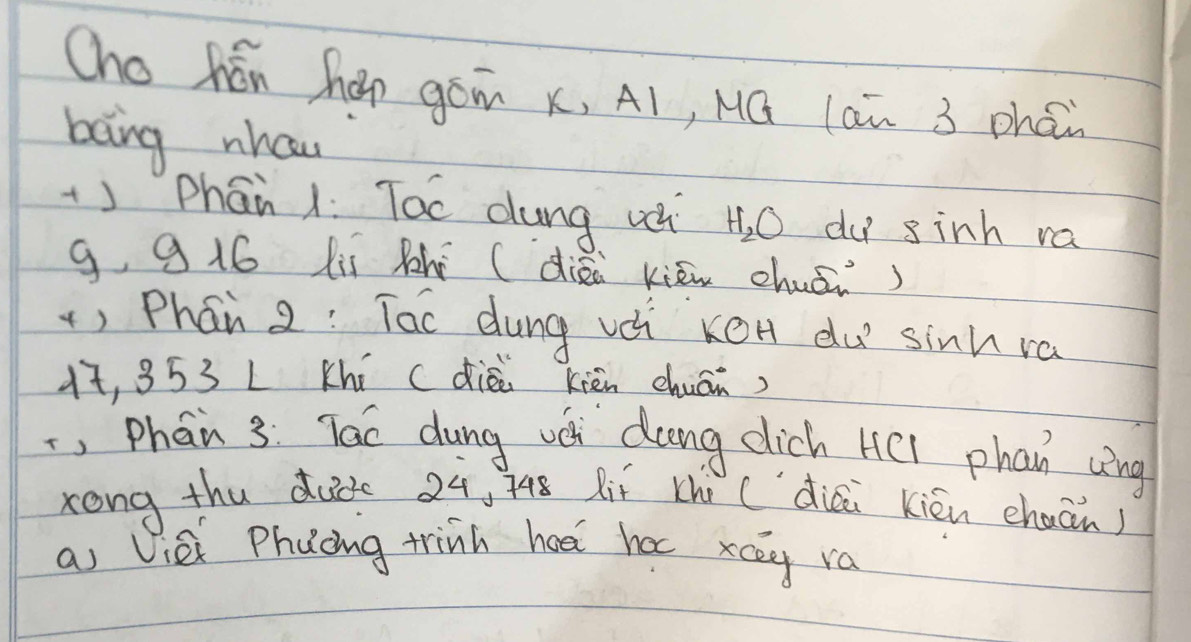 Cho hỗn hợp gồm K, Al, MG làn 3 phần
bằng nhau
+) Phần 1: Tác dụng với H₂O dư sinh ra
9,916 lít khí (điều kiện chuẩn)
+) Phần 2: Tác dụng với KOH dư sinh ra
17,353 L khí (điều kiện chuẩn)
+) Phần 3: Tác dụng với dung dịch HCl phản ứng
xong thu được 24,748 lít khí (điều kiện chuẩn)
a) Viết Phương trình hoá học xảy ra